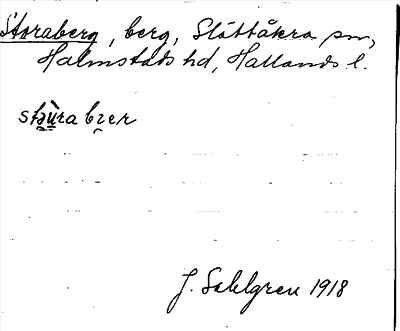 Storaberg, berg, Slättåkra sn,
Halmstads hd, Hallands l.
J. Sahlgren 1918